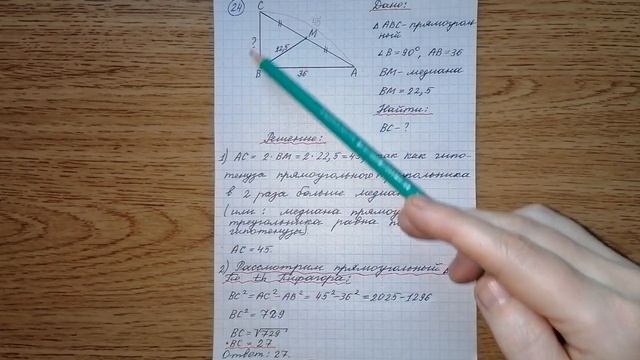 24
C
45
M
?
22,5
B
36
A
Дано:
△ABC-прямоуголь
ный
∠B=90°, AB=36
BM-медиана
BM=22,5
Найти:
BC-?
Решение:
1) AC = 2·BM = 2·22,5 = 45, как гипо-
тенуза прямоугольного
в 2 раза больше
(или: медиана
треугольника равна
гипотенузы)
AC=45.
2) Рассмотрим прямоугольный
По th Пифагора:
BC²=AC²-AB²=45²-36²=2025-1296
BC²=729
BC=√729
BC=27
Ответ: 27.